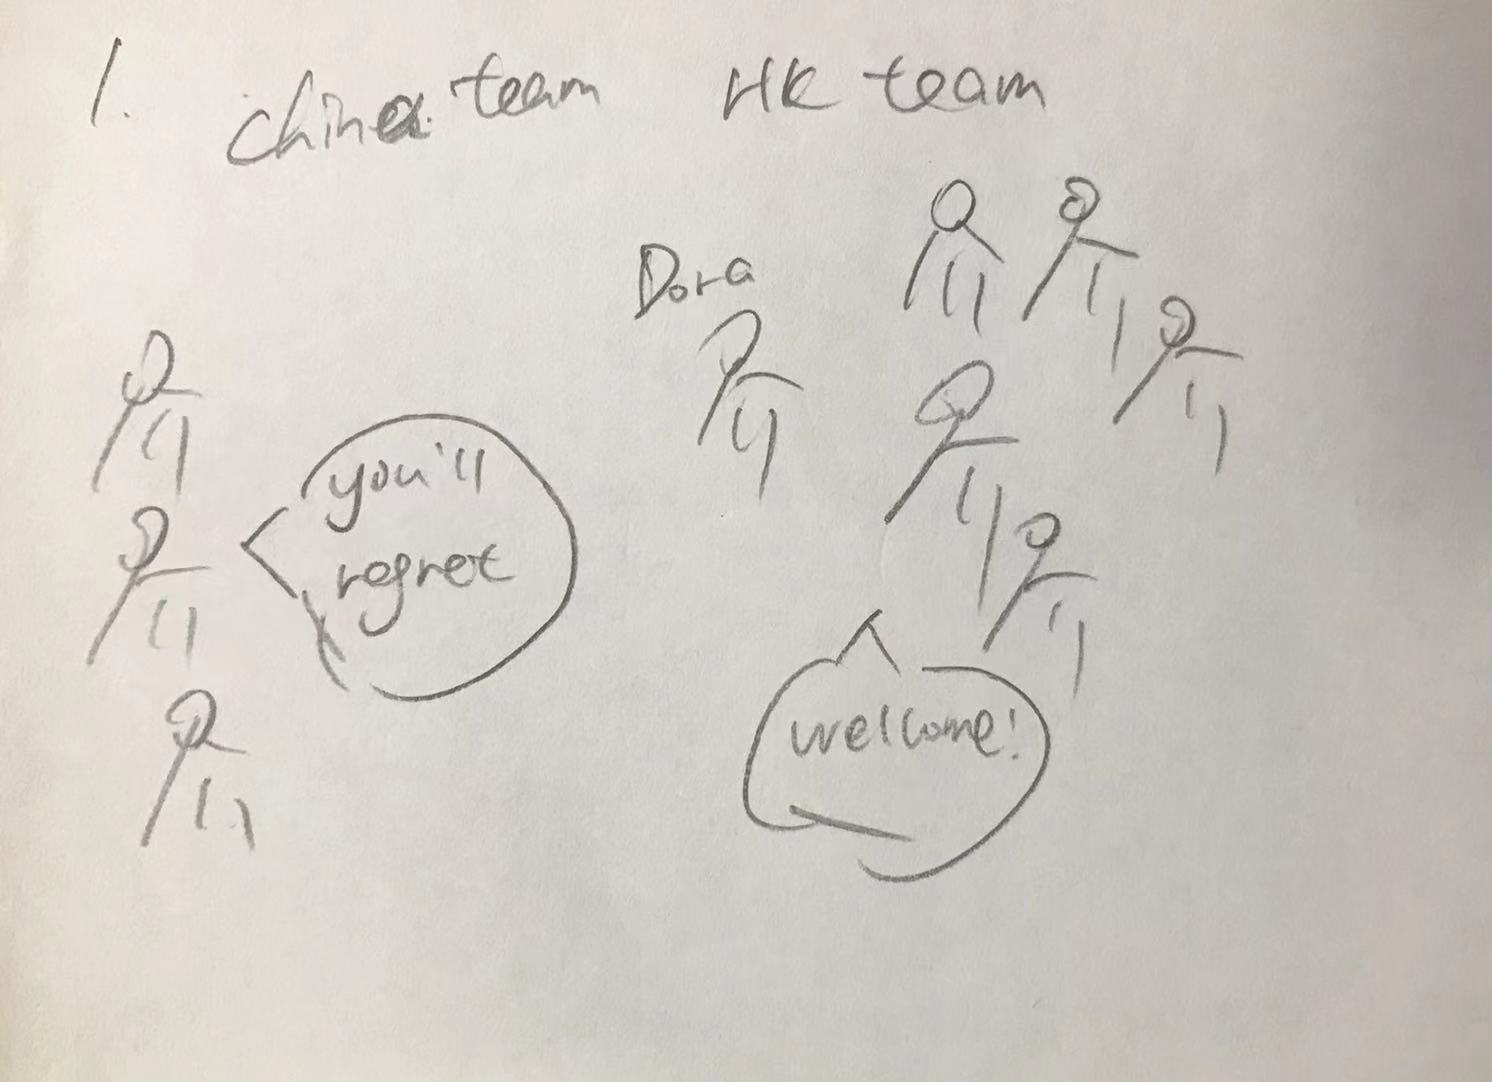 1. China team HK team
Dora
you'll
regret
welcome!